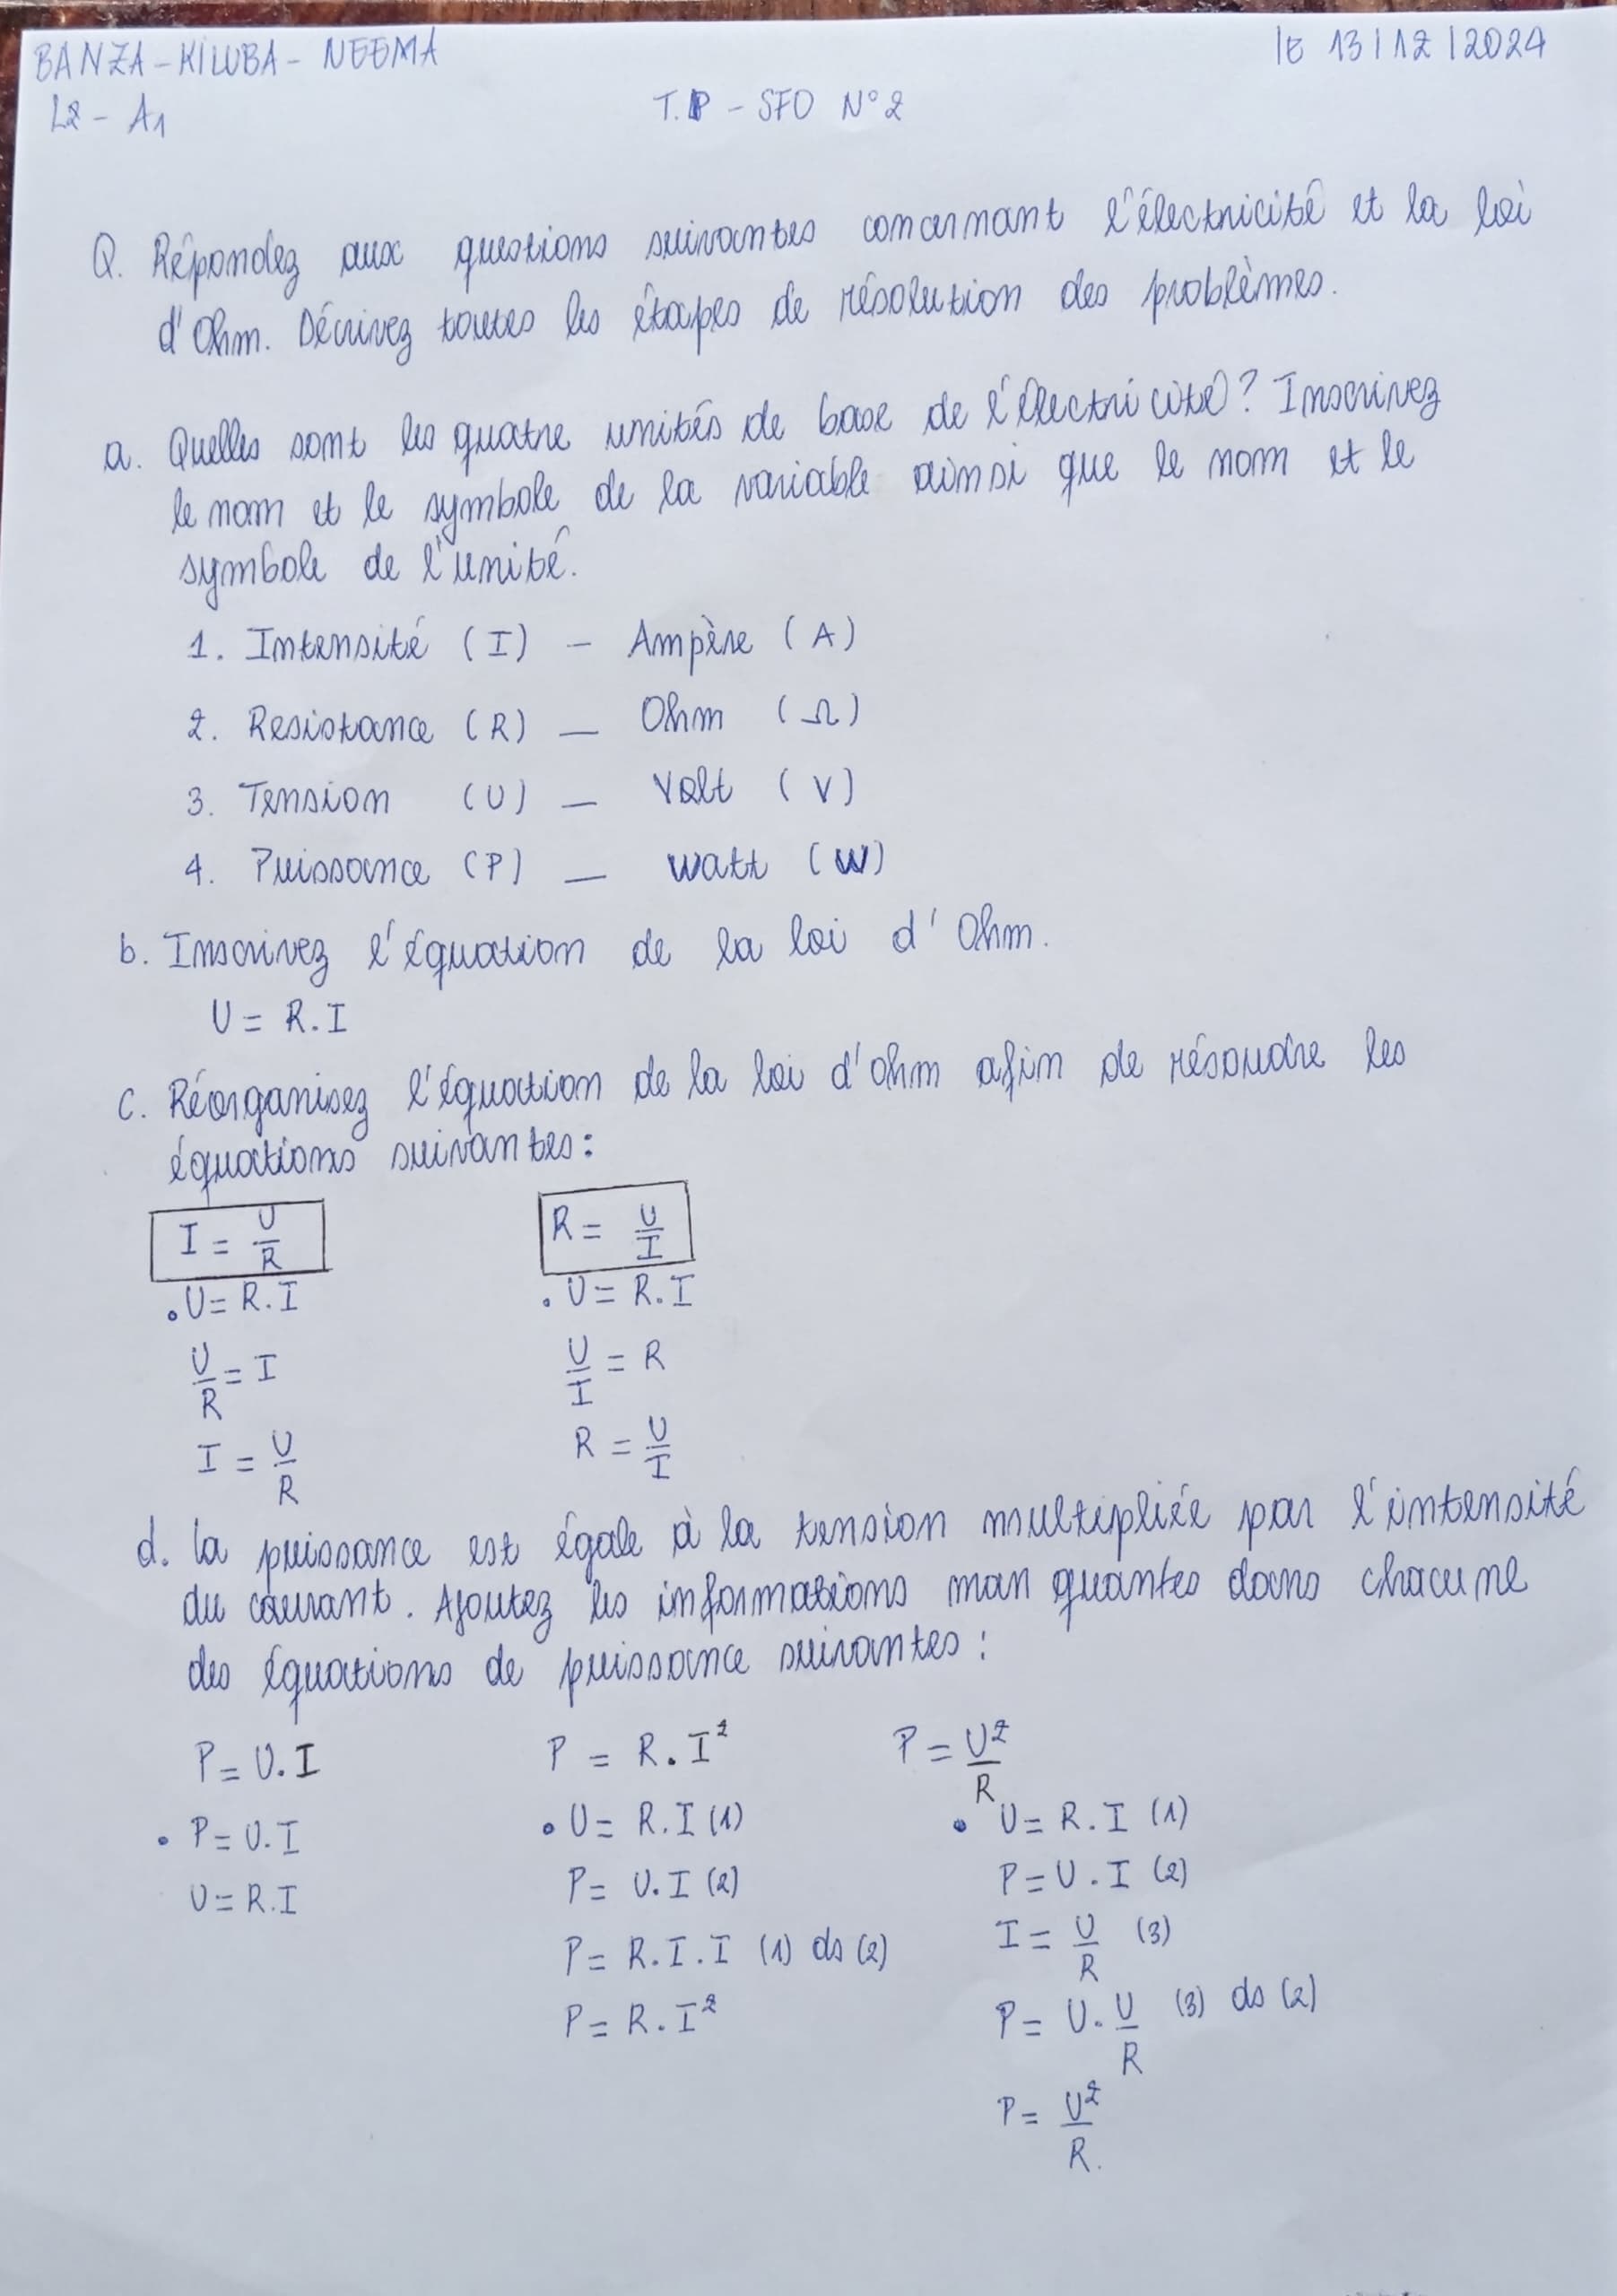 BANZA-KILUBA-NEEMA
le 13/12/2024
L2-A1
T.P-SFO N°2
Q. Répondez aux questions suivantes concernant l'électricité et la loi
d'Ohm. Décrivez toutes les étapes de résolution des problèmes.
a. Quelles sont les quatre unités de base de l'électricité? Inscrivez
le nom et le symbole de la variable ainsi que le nom et le
symbole de l'unité.
1. Intensité (I) - Ampère (A)
2. Resistance (R) - Ohm (Ω)
3. Tension (U) - Volt (V)
4. Puissance (P) - watt (W)
b. Inscrivez l'équation de la loi d'Ohm.
U = R.I
c. Réorganisez l'équation de la loi d'ohm afin de résoudre les
équations suivantes:
I = U/R R = U/I
.U = R.I .U = R.I
U/R = I U/I = R
I = U/R R = U/I
d. la puissance est égale à la tension multipliée par l'intensité
du courant. Ajoutez les informations manquantes dans chacune
des équations de puissance suivantes:
P = U.I P = R.I² P = U²/R
• P = U.I • U = R.I (1) • U = R.I (1)
U = R.I P = U.I (2) P = U.I (2)
P = R.I.I (1) ds (2) I = U/R (3)
P = R.I² P = U.U/R (3) ds (2)
P = U²/R.